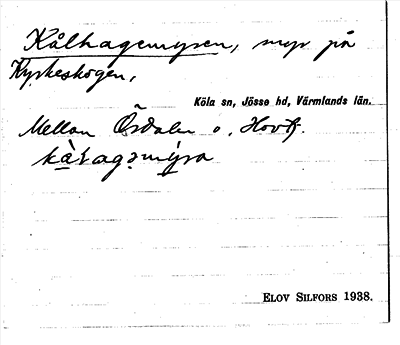 Kålhagemyren, myr på
Kyrkeskogen,
Köla sn, Jösse hd, Värmlands län.
Mellan Ösdalen o. Hovf.
kàłagəmýra
ELOV SILFORS 1938.